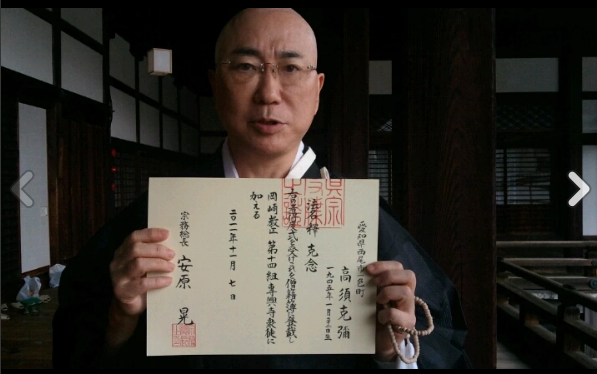 愛知県西尾市一色町
高須克彌
一九四五年一月二十二日生
法名釋 克念
得度式を受け 僧籍簿に登載し
岡崎教区 第十四組 専興寺衆徒に
加える
二〇一一年十一月 七日
宗務総長 安原 晃